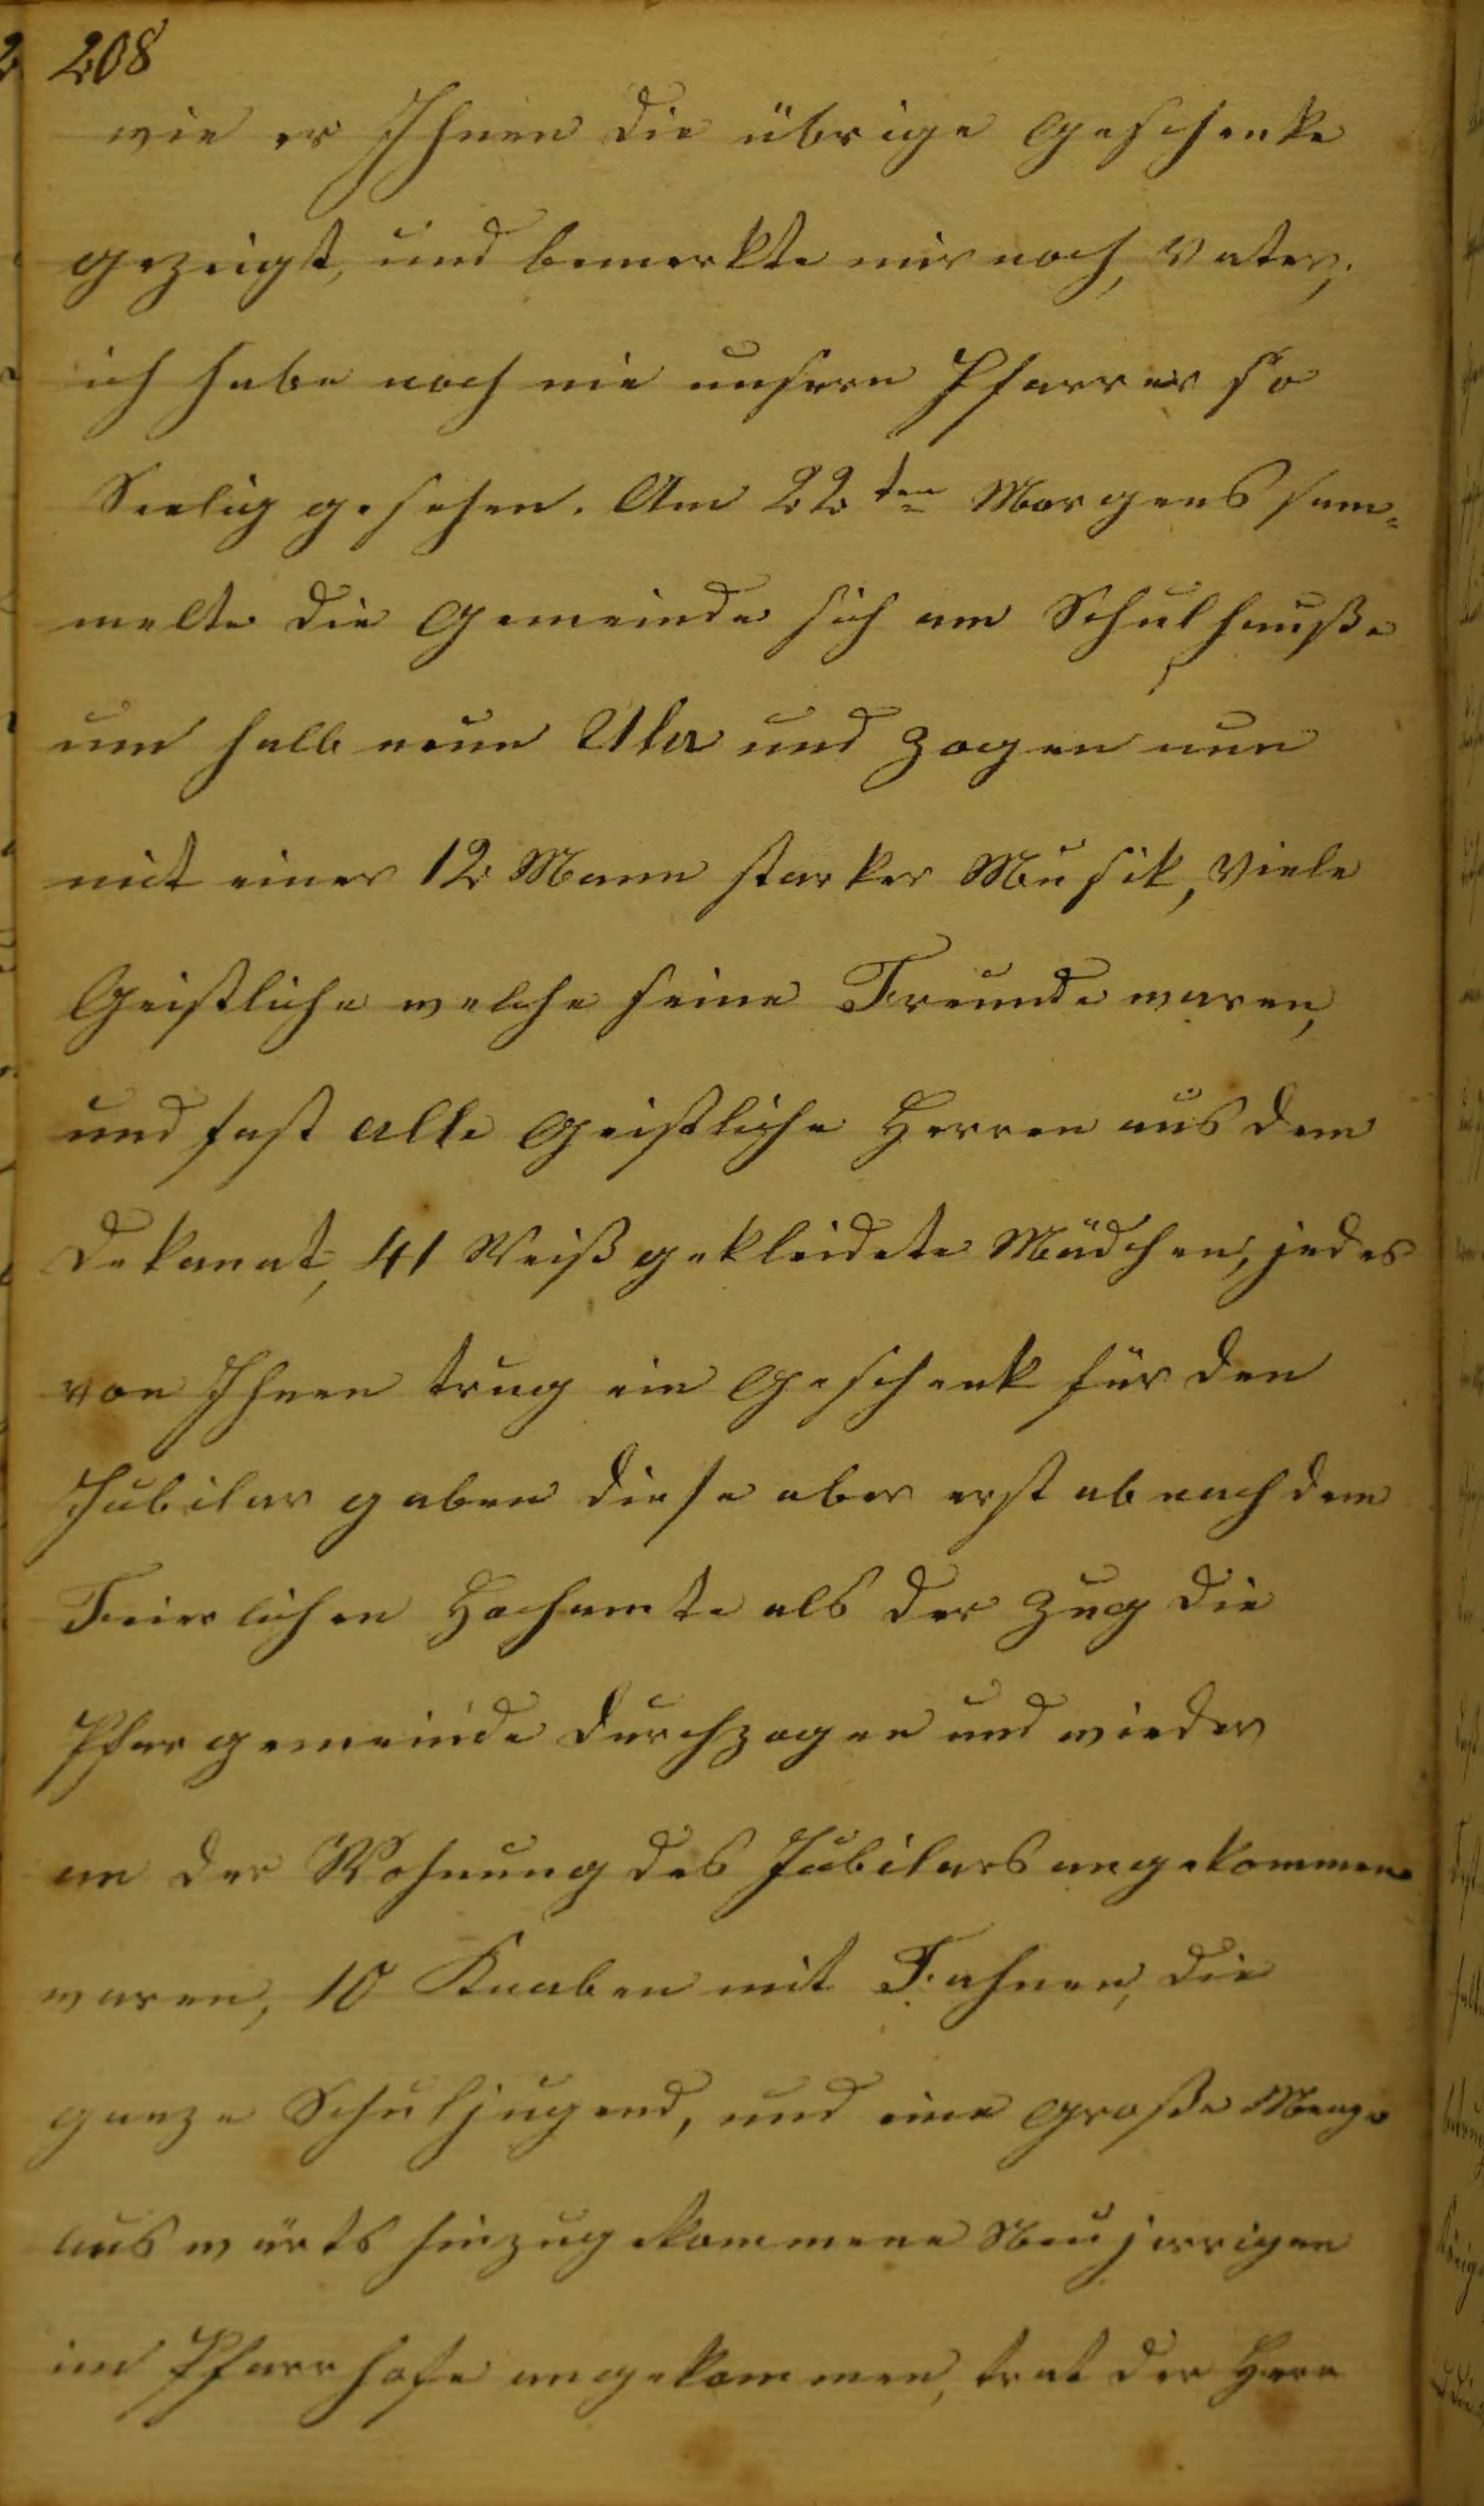 208
wie er Ihnen die übrige Geschenke
gezeigt, und bemerkte mir noch, Vater,
ich habe noch nie unsern Pfarrer so
Seelig gesehen. Am 22ten Morgens sam=
melte die Gemeinde sich am Schulhauße
um halb neun Uhr und zogen nun
mit einer 12 Mann starker Musik, viele
Geistliche welche seine Freunde waren,
und fast alle Geistliche Herren aus dem
Dekanat, 41 Weiß gekleidete Mädchen, jedes
von Ihnen trug ein Geschenk für den
Jubilar gaben diese aber erst ab nach dem
Feierlichen Hochamte als der Zug die
Pfargemeinde durchzogen und wieder
an der Wohnung des Jubilars angekommen
waren, 10 Knaben mit Fahnen, die
ganze Schuljugend, und eine große Menge
auswärts hinzugekommene Neujerrigen
im Pfarrhofe angekommen, trat der Herr